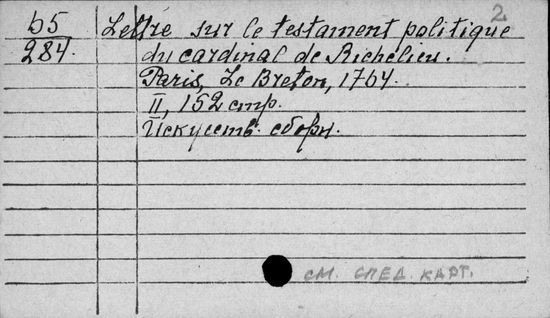 2
Б5 Lettre sur le testament politique
284. du cardinal de Richelieu.
Paris, Le Breton, 1764.
II, 152 стр.
Искусств. сборн.
СМ. СПЕД. КАРТ.